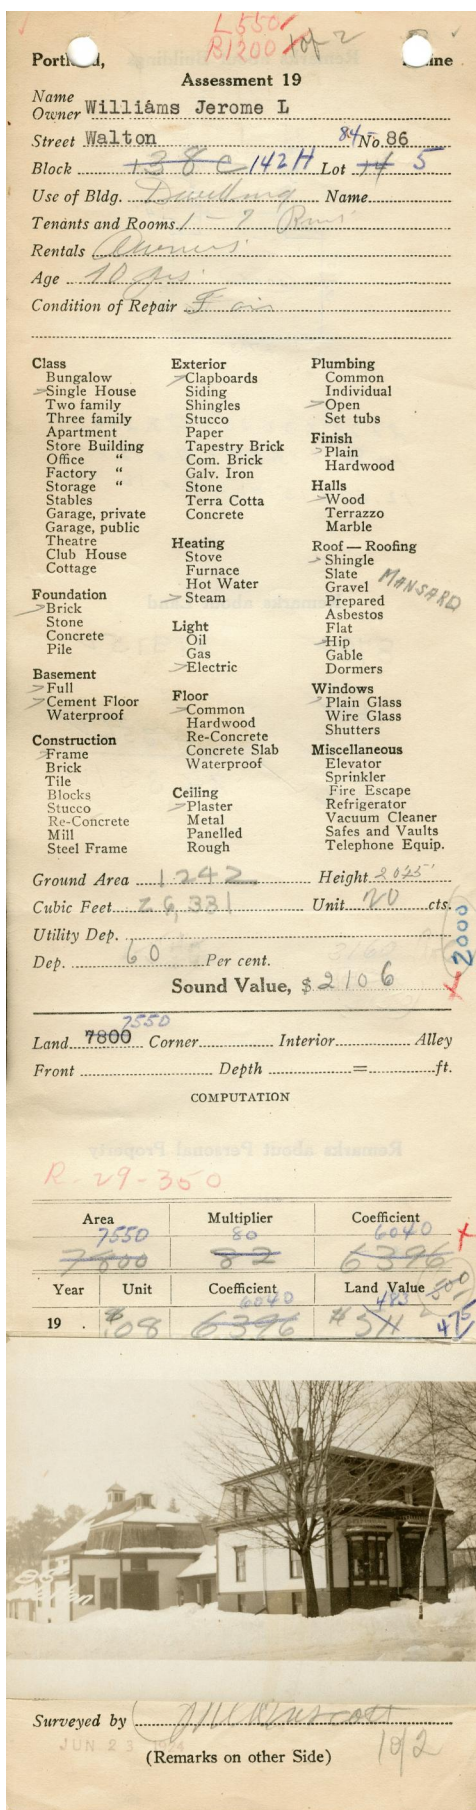 L550
B1200 1 of 2
Portland, Maine
Assessment 19
Name
Owner Williams Jerome L
Street Walton 84- No. 86
Block 138 C 142H Lot 14 5
Use of Bldg. Dwelling Name
Tenants and Rooms 1 - 7 Rms
Rentals Owners
Age 10 yrs.
Condition of Repair Fair
Class
Bungalow
Single House
Two family
Three family
Apartment
Store Building
Office "
Factory "
Storage "
Stables
Garage, private
Garage, public
Theatre
Club House
Cottage
Foundation
Brick
Stone
Concrete
Pile
Basement
Full
Cement Floor
Waterproof
Construction
Frame
Brick
Tile
Blocks
Stucco
Re-Concrete
Mill
Steel Frame
Exterior
Clapboards
Siding
Shingles
Stucco
Paper
Tapestry Brick
Com. Brick
Galv. Iron
Stone
Terra Cotta
Concrete
Heating
Stove
Furnace
Hot Water
Steam
Light
Oil
Gas
Electric
Floor
Common
Hardwood
Re-Concrete
Concrete Slab
Waterproof
Ceiling
Plaster
Metal
Panelled
Rough
Plumbing
Common
Individual
Open
Set tubs
Finish
Plain
Hardwood
Halls
Wood
Terrazzo
Marble
Roof — Roofing
Shingle
Slate
Gravel
MANSARD
Prepared
Asbestos
Flat
Hip
Gable
Dormers
Windows
Plain Glass
Wire Glass
Shutters
Miscellaneous
Elevator
Sprinkler
Fire Escape
Refrigerator
Vacuum Cleaner
Safes and Vaults
Telephone Equip.
Ground Area 1242 Height
Cubic Feet 26,331 Unit 20 cts.
Utility Dep.
2000
Dep. 60 Per cent.
Sound Value, $2106
7550
Land 7800 Corner Interior Alley
Front Depth = ft.
COMPUTATION
R-29-350
Area Multiplier Coefficient
7550 80 6040
7800 82 6396
Year Unit Coefficient Land Value
6040 483
19 . $.08 6396 $511 475
Surveyed by
JUN 23 1924
(Remarks on other Side)
1 of 2